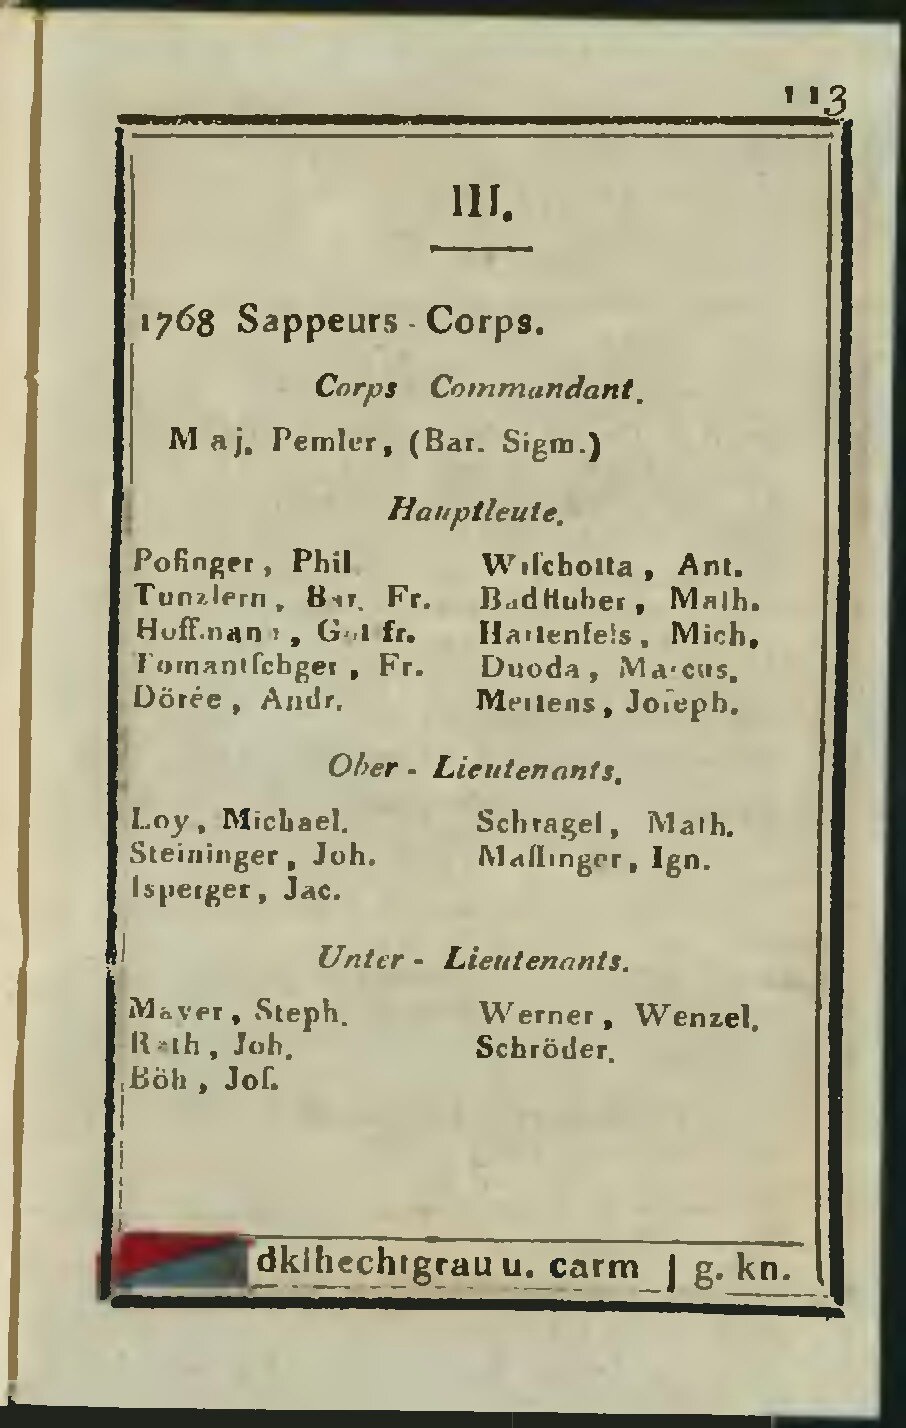 113
III.
1768 Sappeurs-Corps.
Corps Commandant.
Maj. Pemler, (Bar. Sigm.)
Hauptleute.
Pofinger, Phil
Tunzlern, Bar. Fr.
Huffmann, Gotfr.
Tomantſchger, Fr.
Dörée, Andr.
Wiſchotta, Ant.
Badhuber, Math.
Hartenfels, Mich.
Duoda, Marcus.
Mertens, Joſeph.
Ober-Lieutenants.
Loy, Michael.
Steininger, Joh.
Isperger, Jac.
Schragel, Math.
Maſlinger, Ign.
Unter-Lieutenants.
Mayer, Steph.
Rath, Joh.
Böh, Joſ.
Werner, Wenzel.
Schröder.
dklhechtgrau u. carm | g. kn.